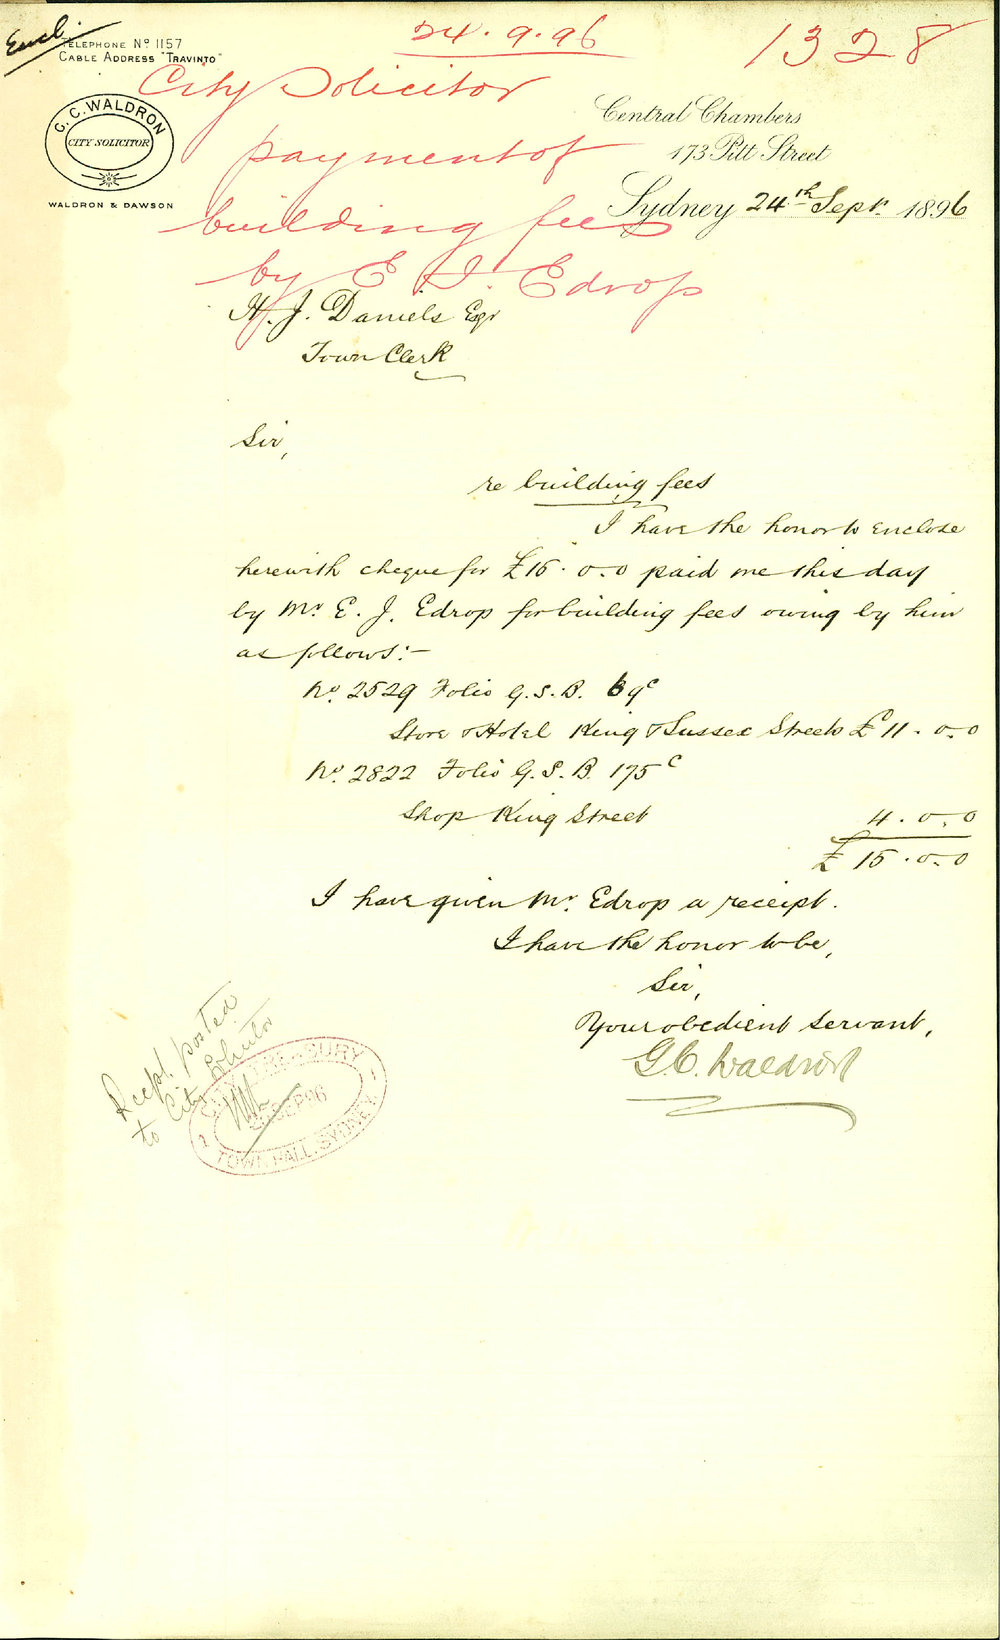 Encl.
TELEPHONE Nº 1157
CABLE ADDRESS "TRAVINTO"
24.9.96
1328
City Solicitor
payment of
building fees
by E. J. Edrop
G. C. WALDRON
CITY SOLICITOR
WALDRON & DAWSON
Central Chambers
173 Pitt Street
Sydney 24th Sept. 1896
H. J. Daniels Esqr
Town Clerk
Sir,
re building fees
I have the honor to enclose
herewith cheque for £15.0.0 paid me this day
by Mr E. J. Edrop for building fees owing by him
as follows:-
No. 2529 Folio G.S.B. 69c
Store & Hotel King & Sussex Streets £11.0.0
No. 2822 Folio G.S.B. 175c
Shop King Street 4.0.0
£15.0.0
I have given Mr. Edrop a receipt.
I have the honor to be,
Sir,
Your obedient servant,
G.C. Waldron
Recpt. posted
to City Solicitor
CITY TREASURY
SEP 96
TOWN HALL, SYDNEY